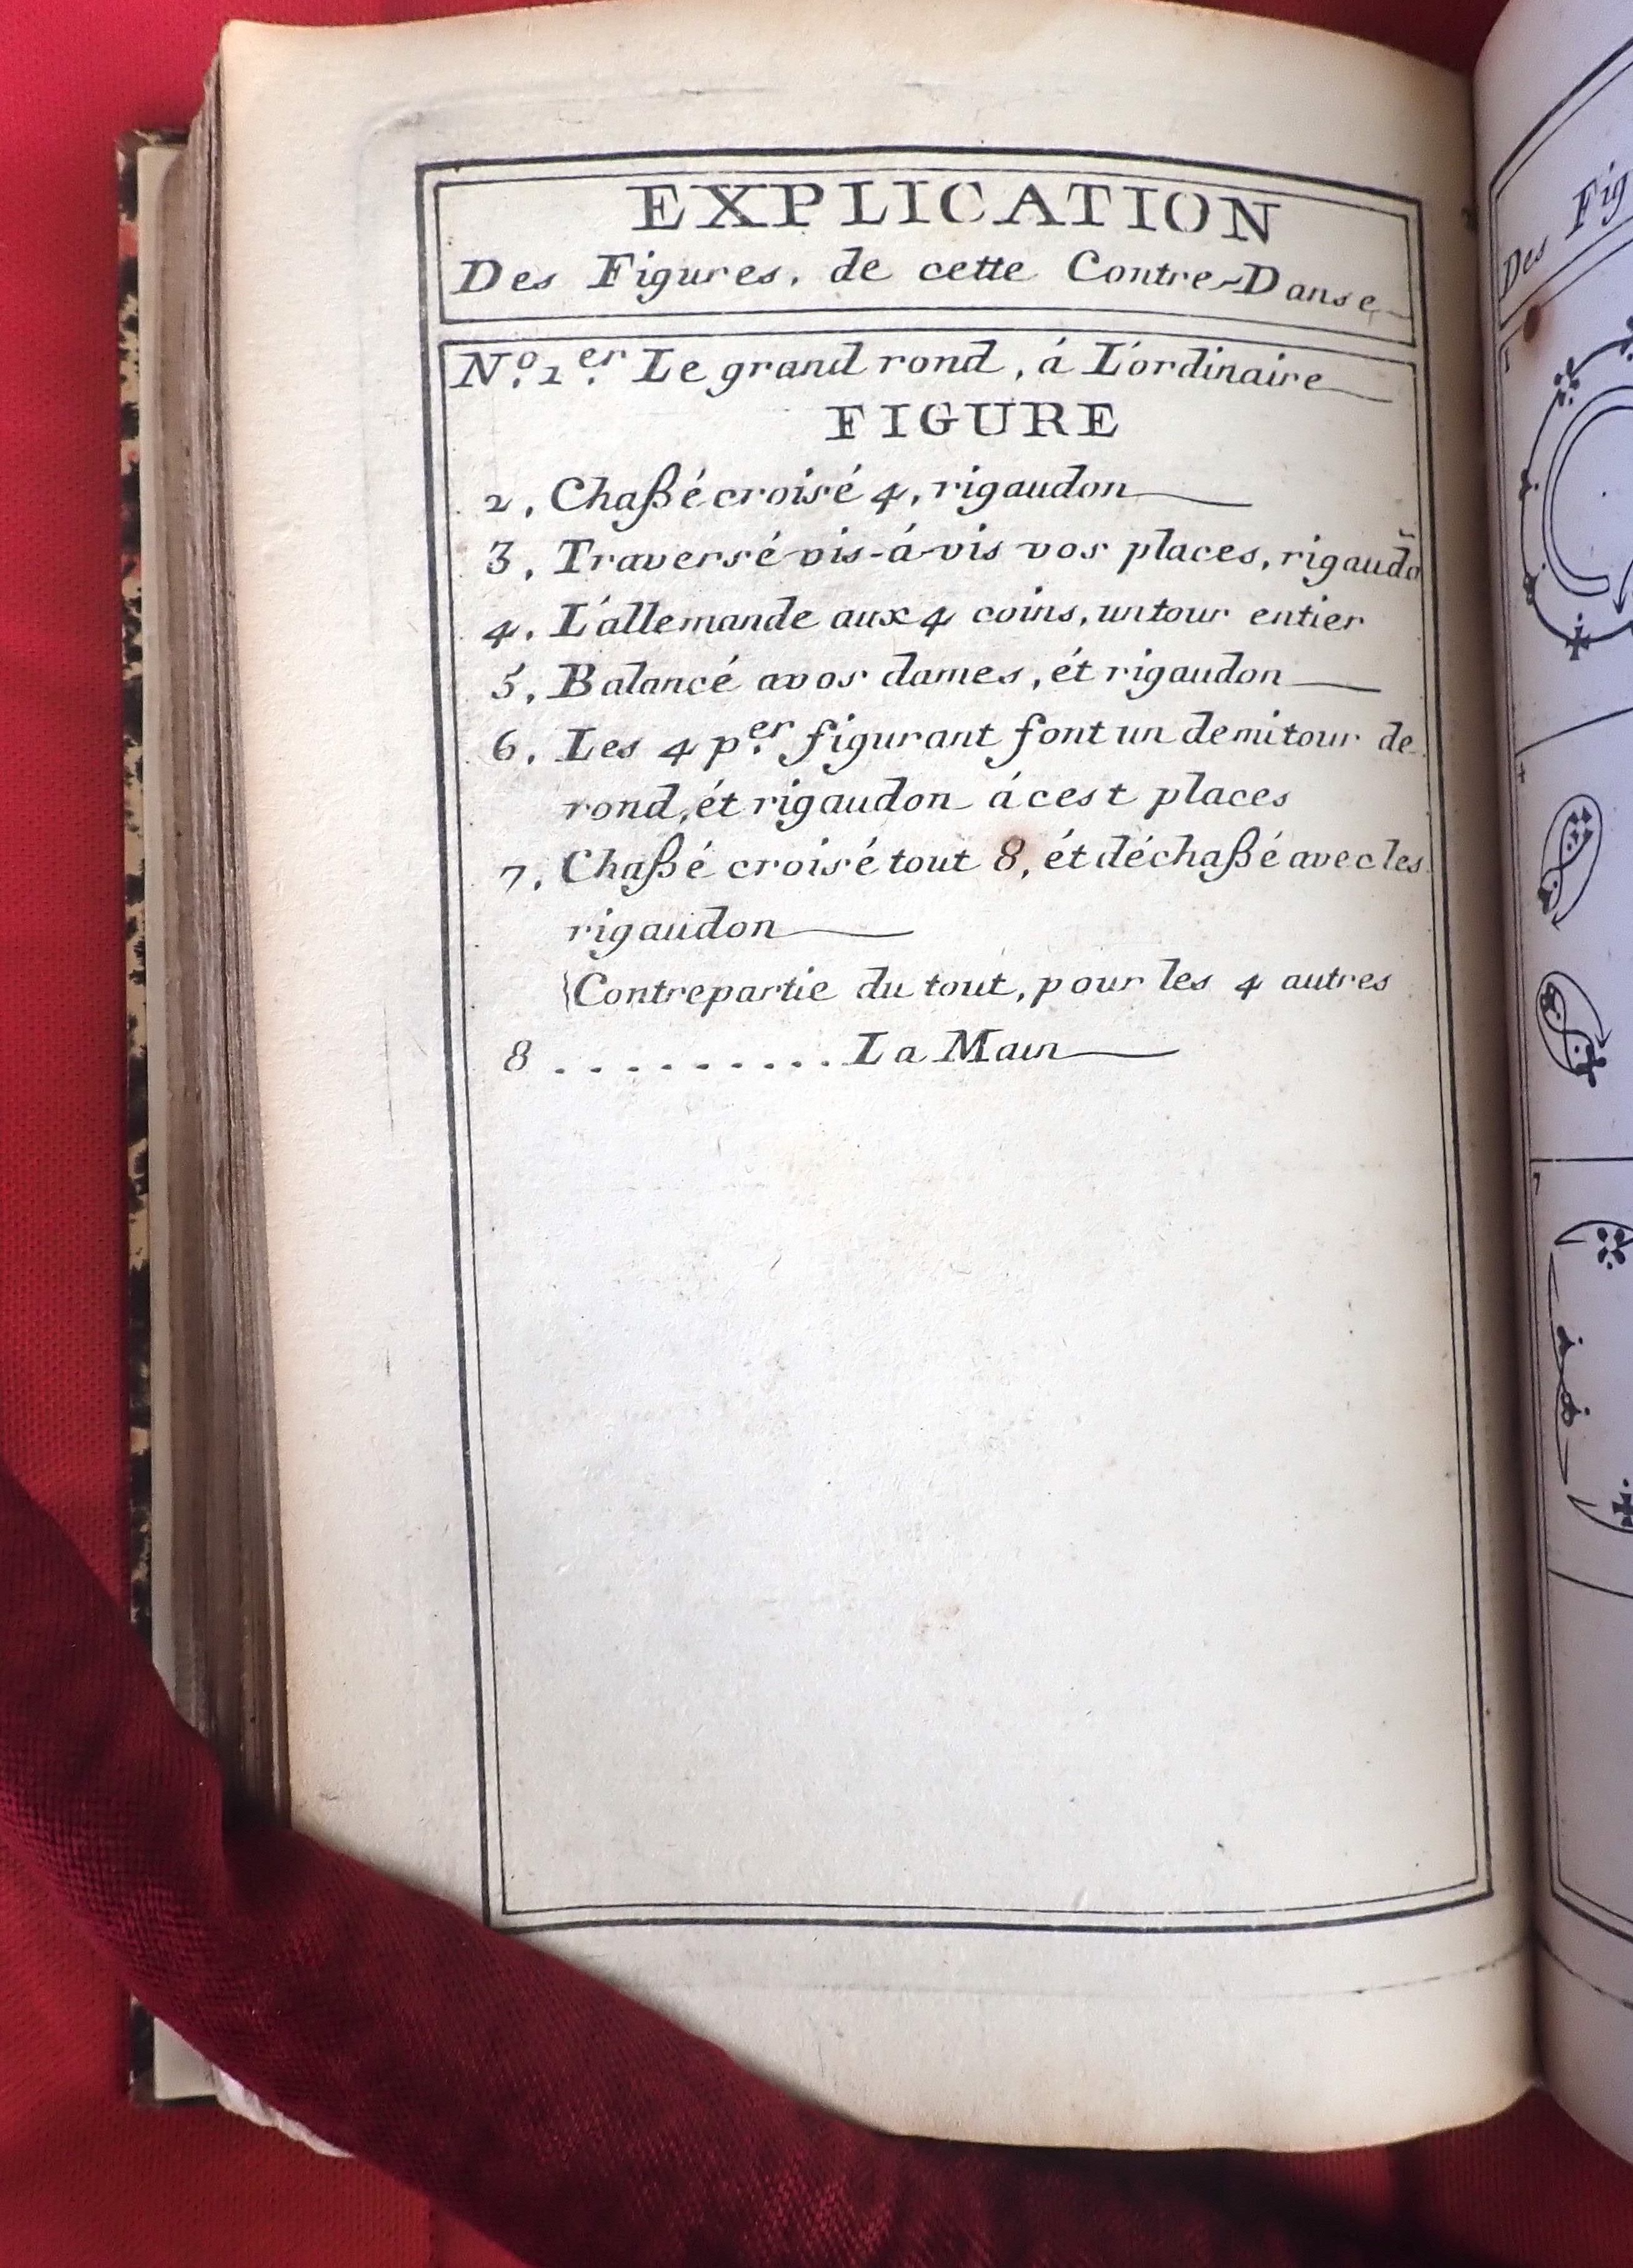 EXPLICATION
Des Figures, de cette Contre-Danse
No. 1er. Le grand rond, á L'ordinaire
FIGURE
2, Chaßé croisé 4, rigaudon
3, Traversé vis-á-vis vos places, rigaudõ
4, L'allemande aux 4 coins, un tour entier
5, Balancé a vos dames, ét rigaudon
6, Les 4 per. figurant font un demi tour de
rond, ét rigaudon á cest places
7, Chaßé croisé tout 8, ét déchaßé avec les
rigaudon
{Contrepartie du tout, pour les 4 autres
8 .......... La Main
Des Fig